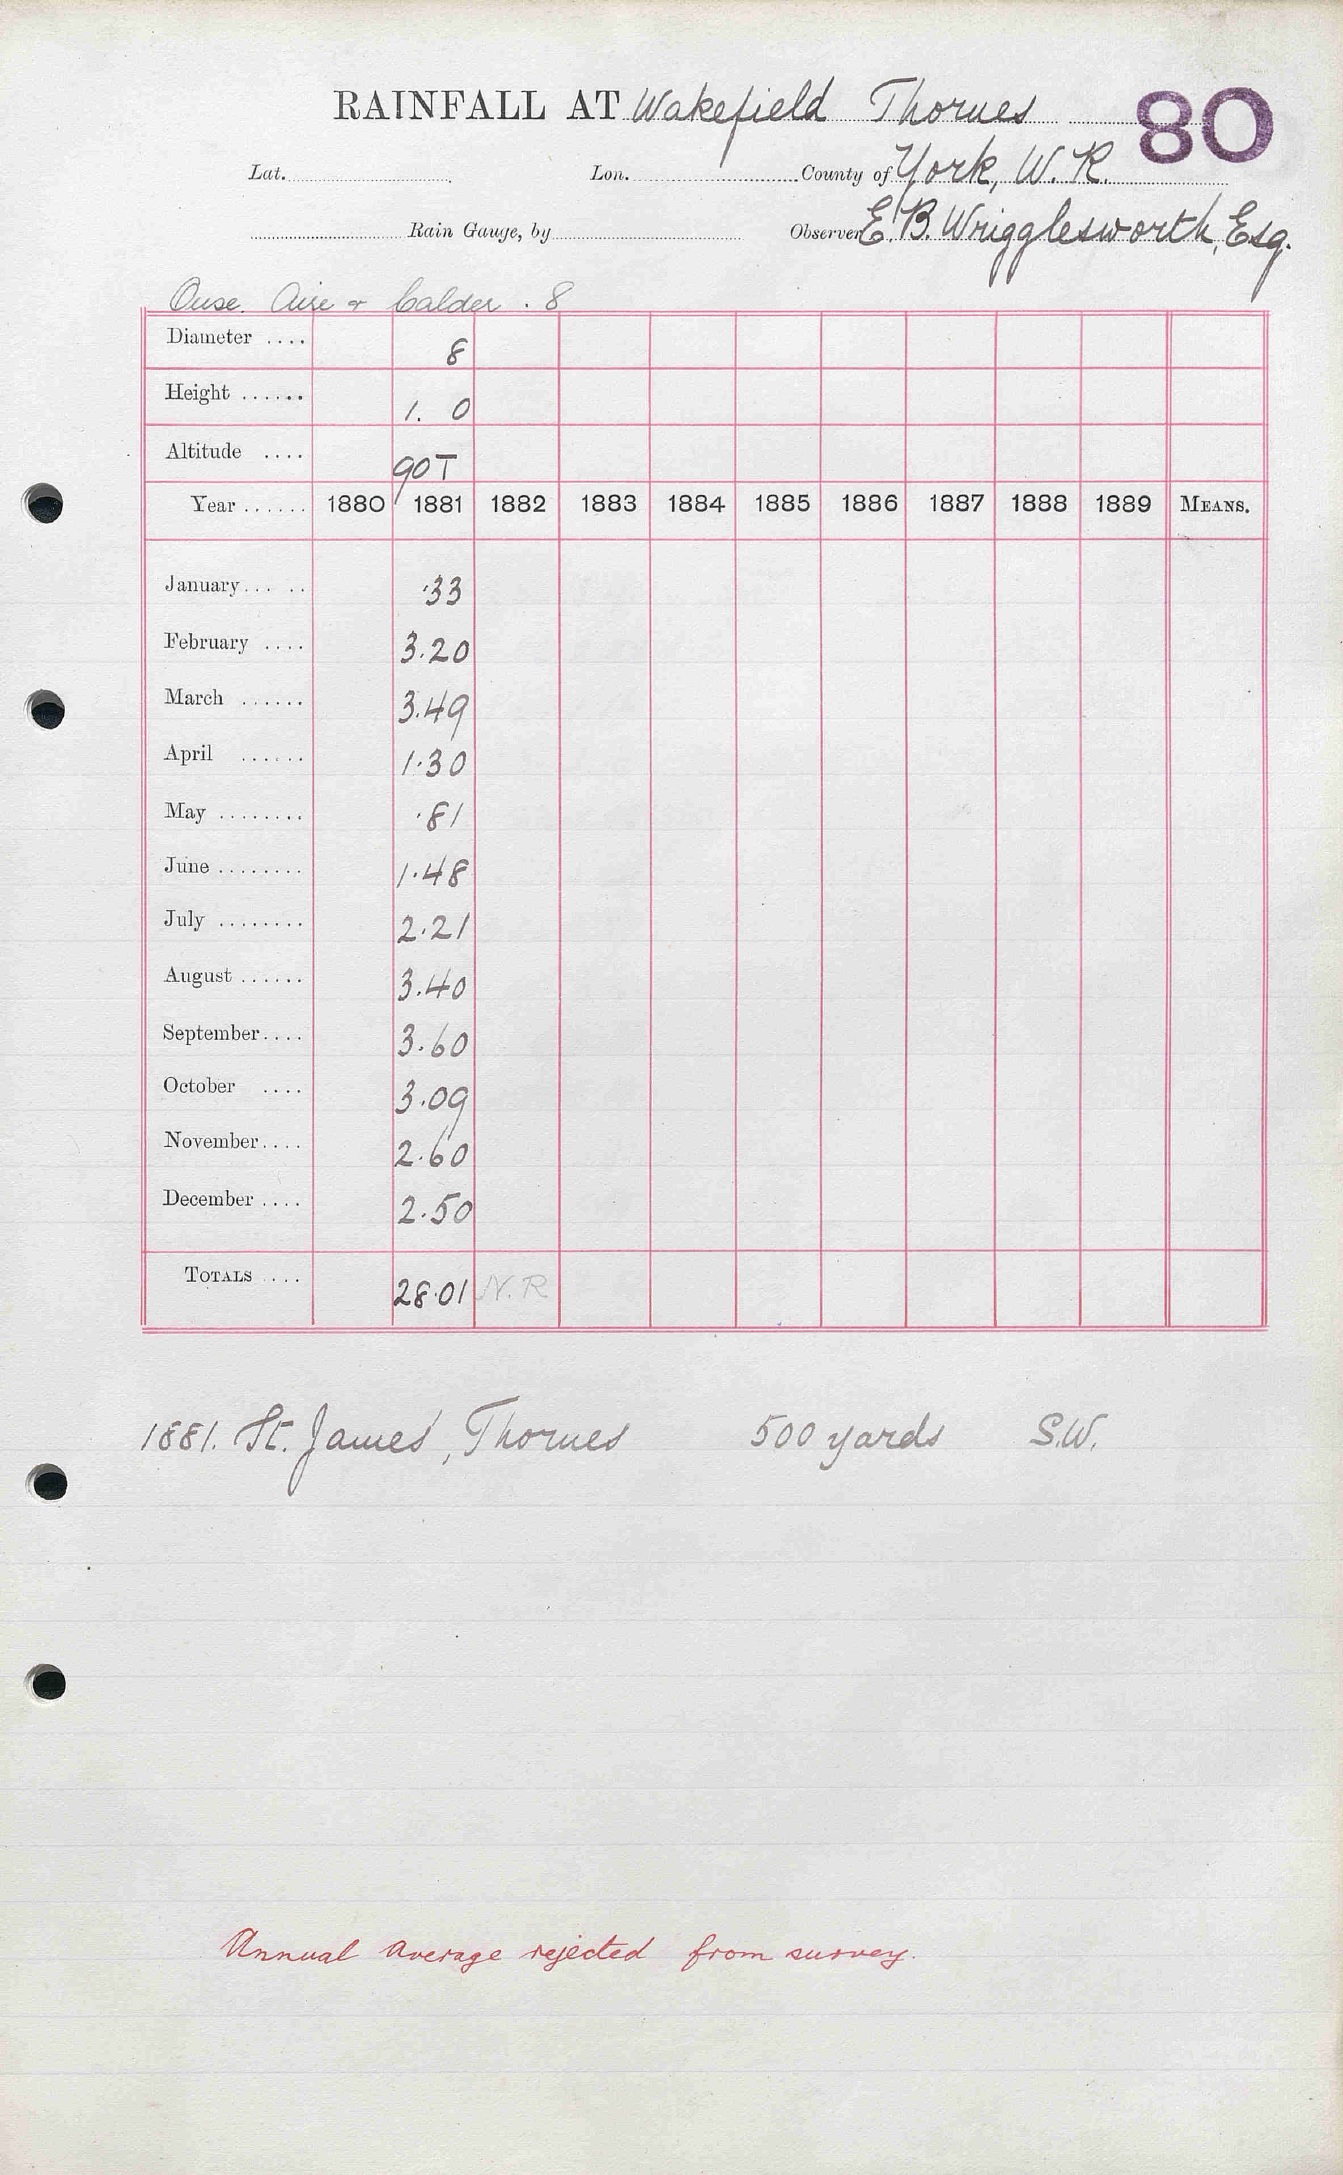 RAINFALL AT Wakefield Thornes 80
Lat. Lon. County of York, W. R.
Rain Gauge, by Observer E. B. Wrigglesworth, Esq.
Ouse. Aire & Calder . 8
Diameter .... 8
Height ...... 1. 0
Altitude .... 90T
Year ...... 1880 1881 1882 1883 1884 1885 1886 1887 1888 1889 MEANS.
January... .. ·33
February .... 3.20
March ...... 3.49
April ...... 1.30
May ........ ·81
June ........ 1.48
July ........ 2.21
August ...... 3.40
September.... 3.60
October .... 3.09
November.... 2.60
December .... 2.50
TOTALS .... 28.01 N.R
1881. St. James', Thornes 500 yards S.W.
Annual average rejected from survey.